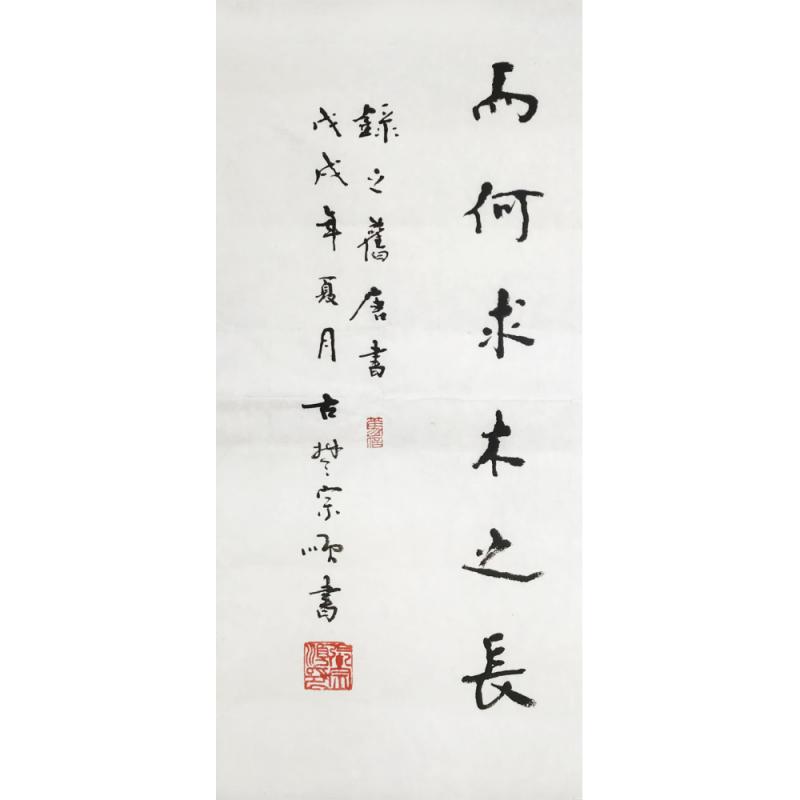 而何求木之長
錄之舊唐書
戊戌年夏月古楚宗順書